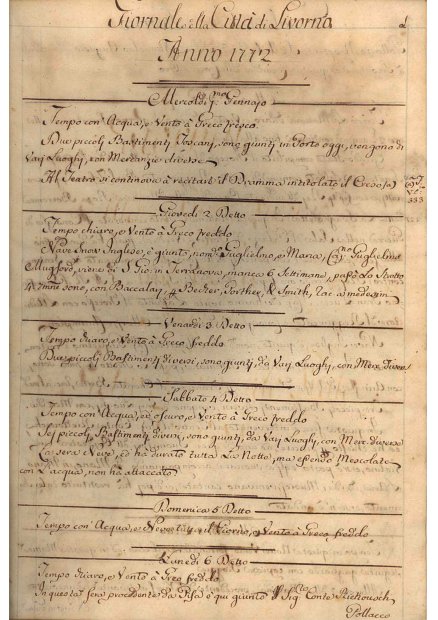 Giornale della Città di Livorno
Anno 1772
Mercoldi p.mo Gennajo
Tempo con Acqua, e Vento à Greco fresco
Due piccoli Bastimenti Toscani, sono giunti in Porto oggi, vengono di
Varj Luoghi, con Mercanzie diverse
Al Teatro si continova à recitare il Dramma intitolato il Creso (a)
333
Giovedi 2 Detto
Tempo chiaro, e Vento à Greco freddo
Nave Snow Inglese, è giunta, nom.ta Guglielmo, e Maria, Guglielmo
viene di S. Gio. in Terranova, manca 6 Settimane, passò lo Stretto
sono, con Baccalari, Becher, Porther, & Smith, Rac. a medesim
Venardi 3 Detto
Tempo chiaro, e Vento à Greco freddo
Due piccoli Bastimenti diversi, sono giunti, da Varj Luoghi, con Merc. diverse
Sabbato 4 Detto
Tempo con Acqua, e oscuro, e Vento à Greco freddo
Sej piccoli Bastimenti diversi, sono giunti, da Varj Luoghi, con Merc. diverse
La sera Neve, e hà durato tutta La Notte, ma essendo Mescolata
con L'acqua, non hà attaccato
Domenica 5 Detto
Tempo con Acqua, e Neve tutto il Giorno, e Vento à Greco freddo
Lunedi 6 Detto
Tempo chiaro, e Vento à Greco freddo
In questa sera procedente da Pisa è qui giunto il Sig. Conte
Pollacco